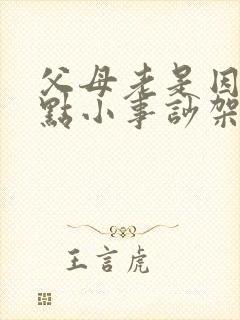 父母老是因
點小事訬架
王言虎